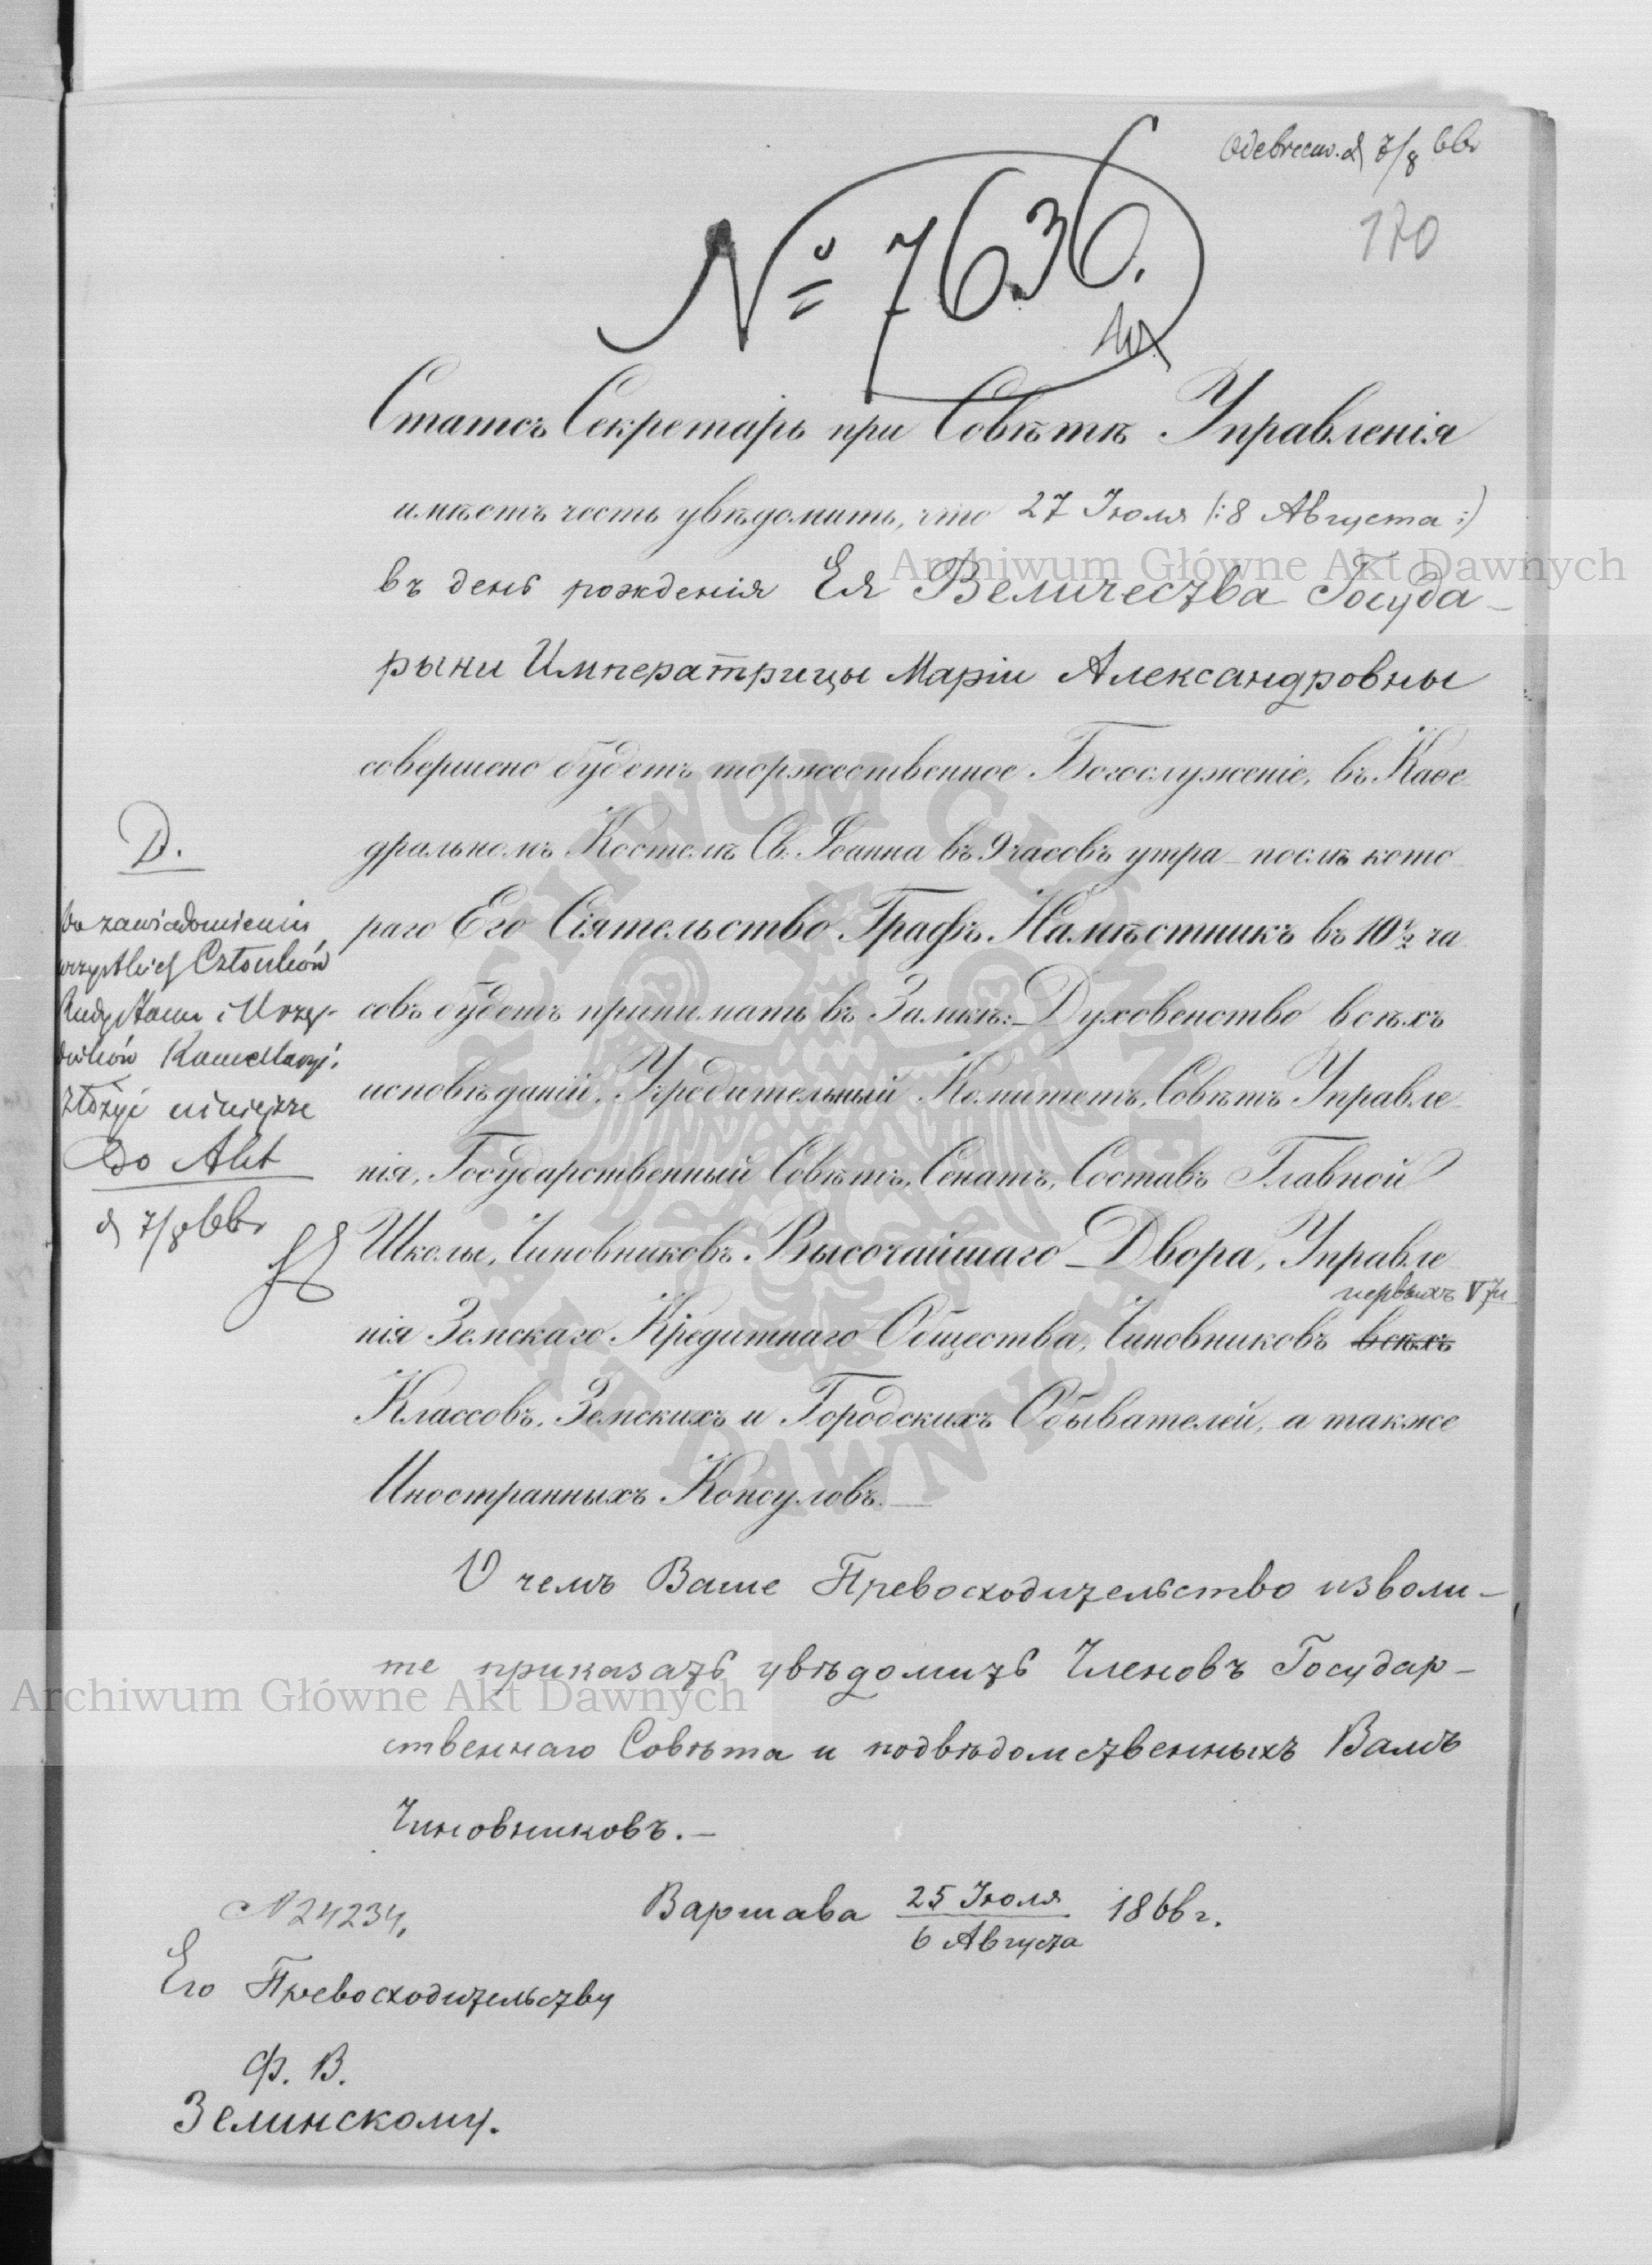 Odebrano d. 7/8 66 r
170
№ 7636.
Статсъ Секретарь при Совѣтѣ Управленія
имѣетъ честь увѣдомить, что 27 Іюля (: 8 Августа :)
въ день рожденія Ея Величества Госуда-
рыни Императрицы Маріи Александровны
совершено будетъ торжественное Богослуженіе, въ Каѳе-
дральномъ Костелѣ Св. Іоанна въ 9 часовъ утра – послѣ кото-
раго Его Сіятельство Графъ Намѣстникъ въ 10 ½ ча-
совъ будетъ принимать въ Замкѣ: Духовенство всѣхъ
исповѣданій, Учредительный Комитетъ, Совѣтъ Управле-
нія, Государственный Совѣтъ, Сенатъ, Составъ Главной
Школы, Чиновниковъ Высочайшаго Двора, Управле-
первыхъ V ти
нія Земскаго Кредитнаго Общества, Чиновниковъ всѣхъ
Классовъ, Земскихъ и Городскихъ Обывателей, а также
Иностранныхъ Консуловъ.—
О чемъ Ваше Превосходительство изволи-
те приказать увѣдомить Членовъ Государ-
ственнаго Совѣта и подвѣдомственныхъ Вамъ
Чиновниковъ.—
Варшава 25 Іюля / 6 Августа 1866 г.
N 24234.
Его Превосходительству
Ф. В.
Зелинскому.
D.
Po zawiadomieniu
wszystkich Członków
Rady Stanu i Urzę-
dników Kancellaryi,
złożyć niniejsze
Do Akt
d 7/8 66 r
Archiwum Główne Akt Dawnych
ARCHIWUM GŁÓWNE AKT DAWNYCH
Archiwum Główne Akt Dawnych